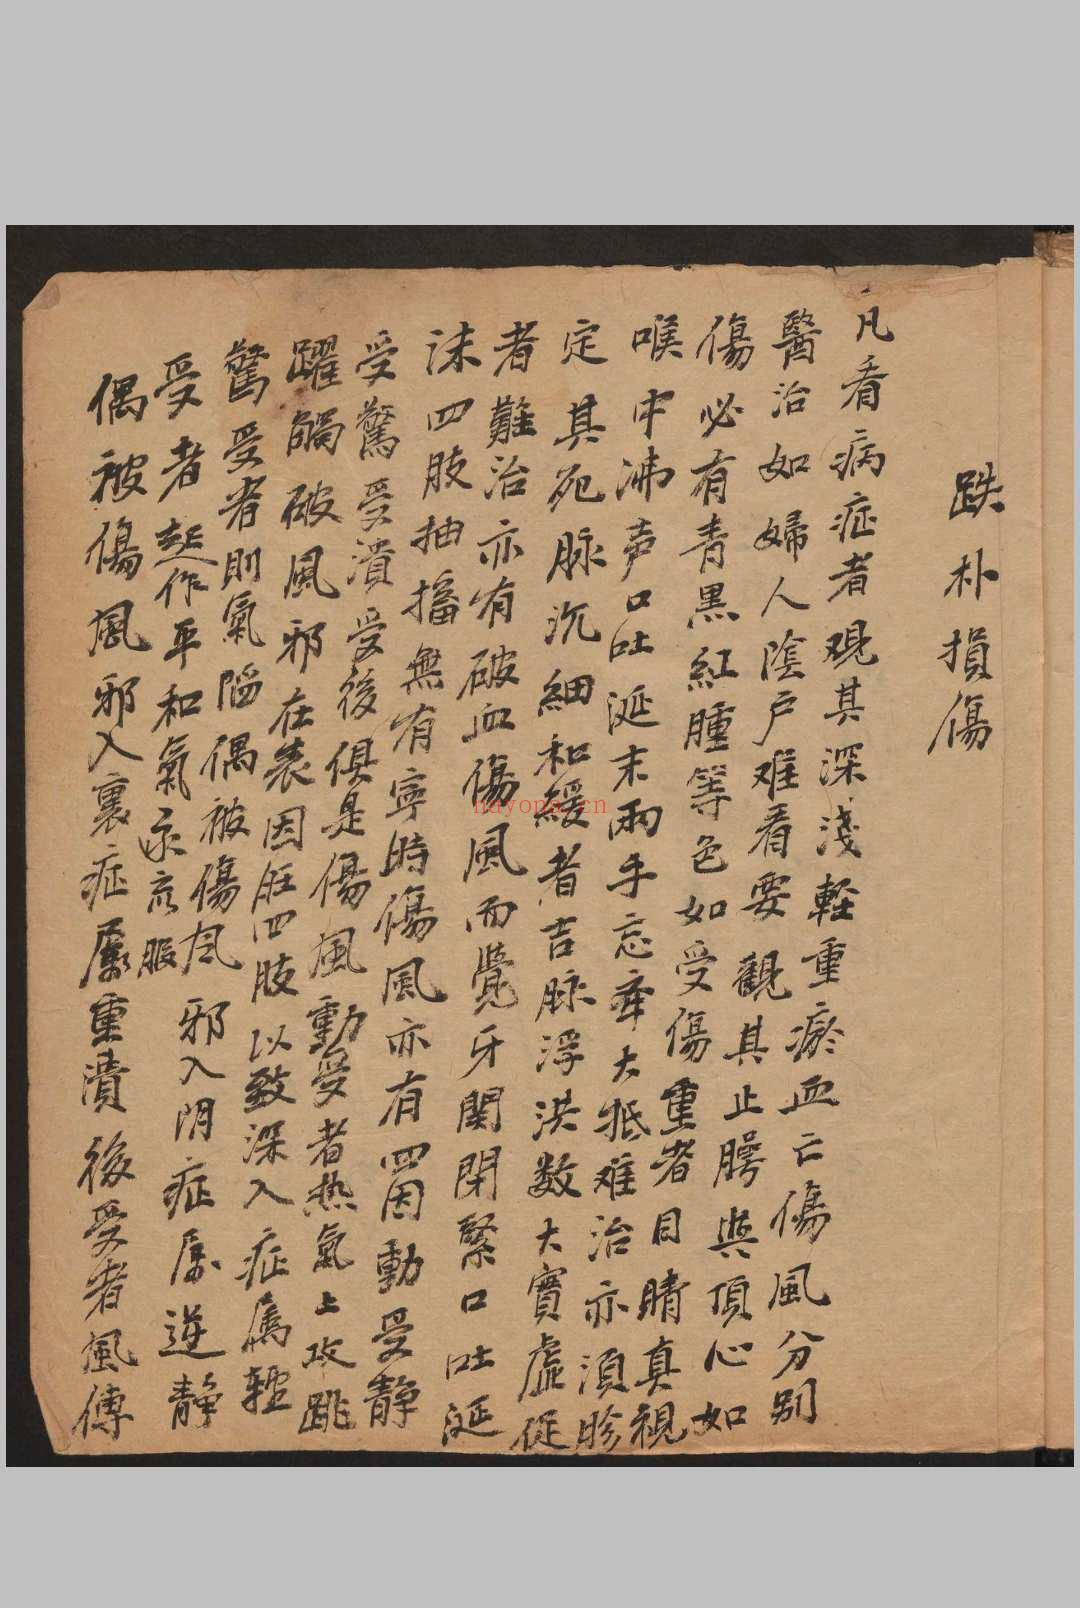 跌朴損傷
凡看病症者观其深淺輕重瘀血亡傷風分别
醫治如婦人陰户难看要觀其止腭與頂心如
傷必有青黑紅腫等色如受傷重者目睛真視
喉中沸声口吐涎末兩手忘牽大抵难治亦須胗
定其死脉沉細和緩者吉脉浮洪数大實虛促
者難治亦有破血傷風而覺牙関閉緊口吐涎
沫四肢抽搐無有寕時傷風亦有四因動受静
受驚受潰受後俱是傷風動受者热氣上攻跳
躍觸破風邪在表因在四肢以致深入症属轻
驚受者則氣陷偶被傷风邪入阴症属逆静
受者起作平和氣不亥服
偶被傷風邪入裏症属重潰後受者風傳
hayopa.cn